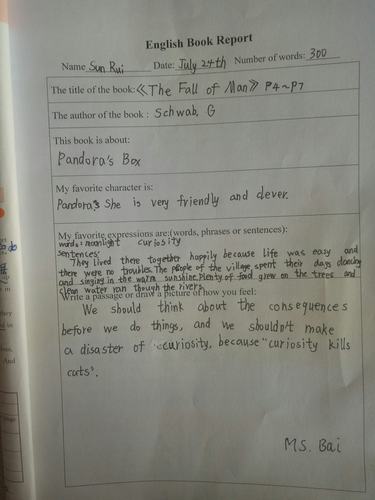 English Book Report
Name Sun Rui Date: July 24th Number of words: 300
The title of the book: 《The Fall of Man》 P4~P7
The author of the book: Schwab, G
This book is about:
Pandora's Box
My favorite character is:
Pandora. She is very friendly and clever.
My favorite expressions are:(words, phrases or sentences):
words: moonlight curiosity
sentences:
They lived there together happily because life was easy and
there were no troubles. The people of the village spent their days dancing
and singing in the warm sunshine. Plenty of food grew on the trees and
clean water ran though the rivers.
Write a passage or draw a picture of how you feel:
We should think about the consequences
before we do things, and we shouldn't make
a disaster of curiosity, because "curiosity kills
cats".
MS. Bai